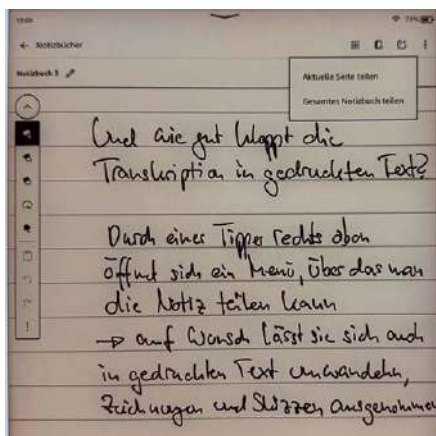 19:09
79%
← Notizbücher
Notizbuch 3
Aktuelle Seite teilen
Gesamtes Notizbuch teilen
Und wie gut klappt die
Transkription in gedruckten Text?
Durch einen Tipper rechts oben
öffnet sich ein Menü, über das man
die Notiz teilen kann
→ auf Wunsch lässt sie sich auch
in gedruckten Text umwandeln,
Zeichnungen und Skizzen ausgenommen